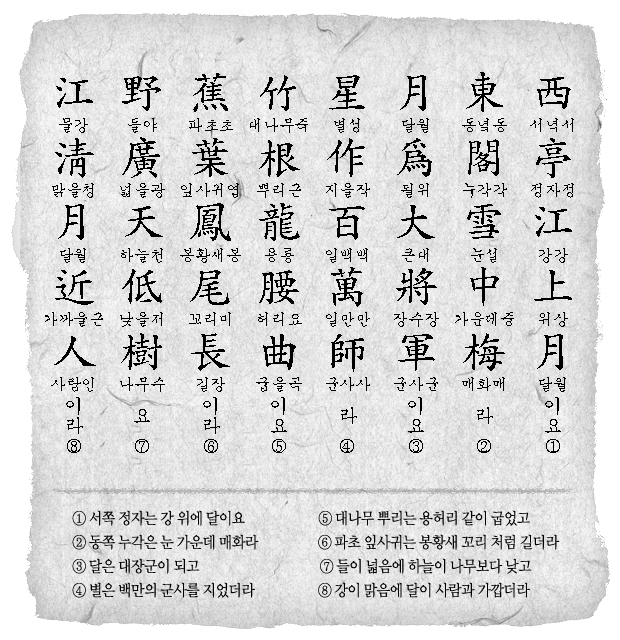 西 서녁서 亭 정자정 江 강강 上 위상 月 달월 이요 ①
東 동녘동 閣 누각각 雪 눈설 中 가운데중 梅 매화매 라 ②
月 달월 爲 될위 大 큰대 將 장수장 軍 군사군 이요 ③
星 별성 作 지을작 百 일백백 萬 일만만 師 군사사 라 ④
竹 대나무죽 根 뿌리근 龍 용룡 腰 허리요 曲 굽을곡 이요 ⑤
蕉 파초초 葉 잎사귀엽 鳳 봉황새봉 尾 꼬리미 長 길장 이라 ⑥
野 들야 廣 넓을광 天 하늘천 低 낮을저 樹 나무수 요 ⑦
江 물강 淸 맑을청 月 달월 近 가까울근 人 사람인 이라 ⑧
① 서쪽 정자는 강 위에 달이요
② 동쪽 누각은 눈 가운데 매화라
③ 달은 대장군이 되고
④ 별은 백만의 군사를 지었더라
⑤ 대나무 뿌리는 용허리 같이 굽었고
⑥ 파초 잎사귀는 봉황새 꼬리 처럼 길더라
⑦ 들이 넓음에 하늘이 나무보다 낮고
⑧ 강이 맑음에 달이 사람과 가깝더라